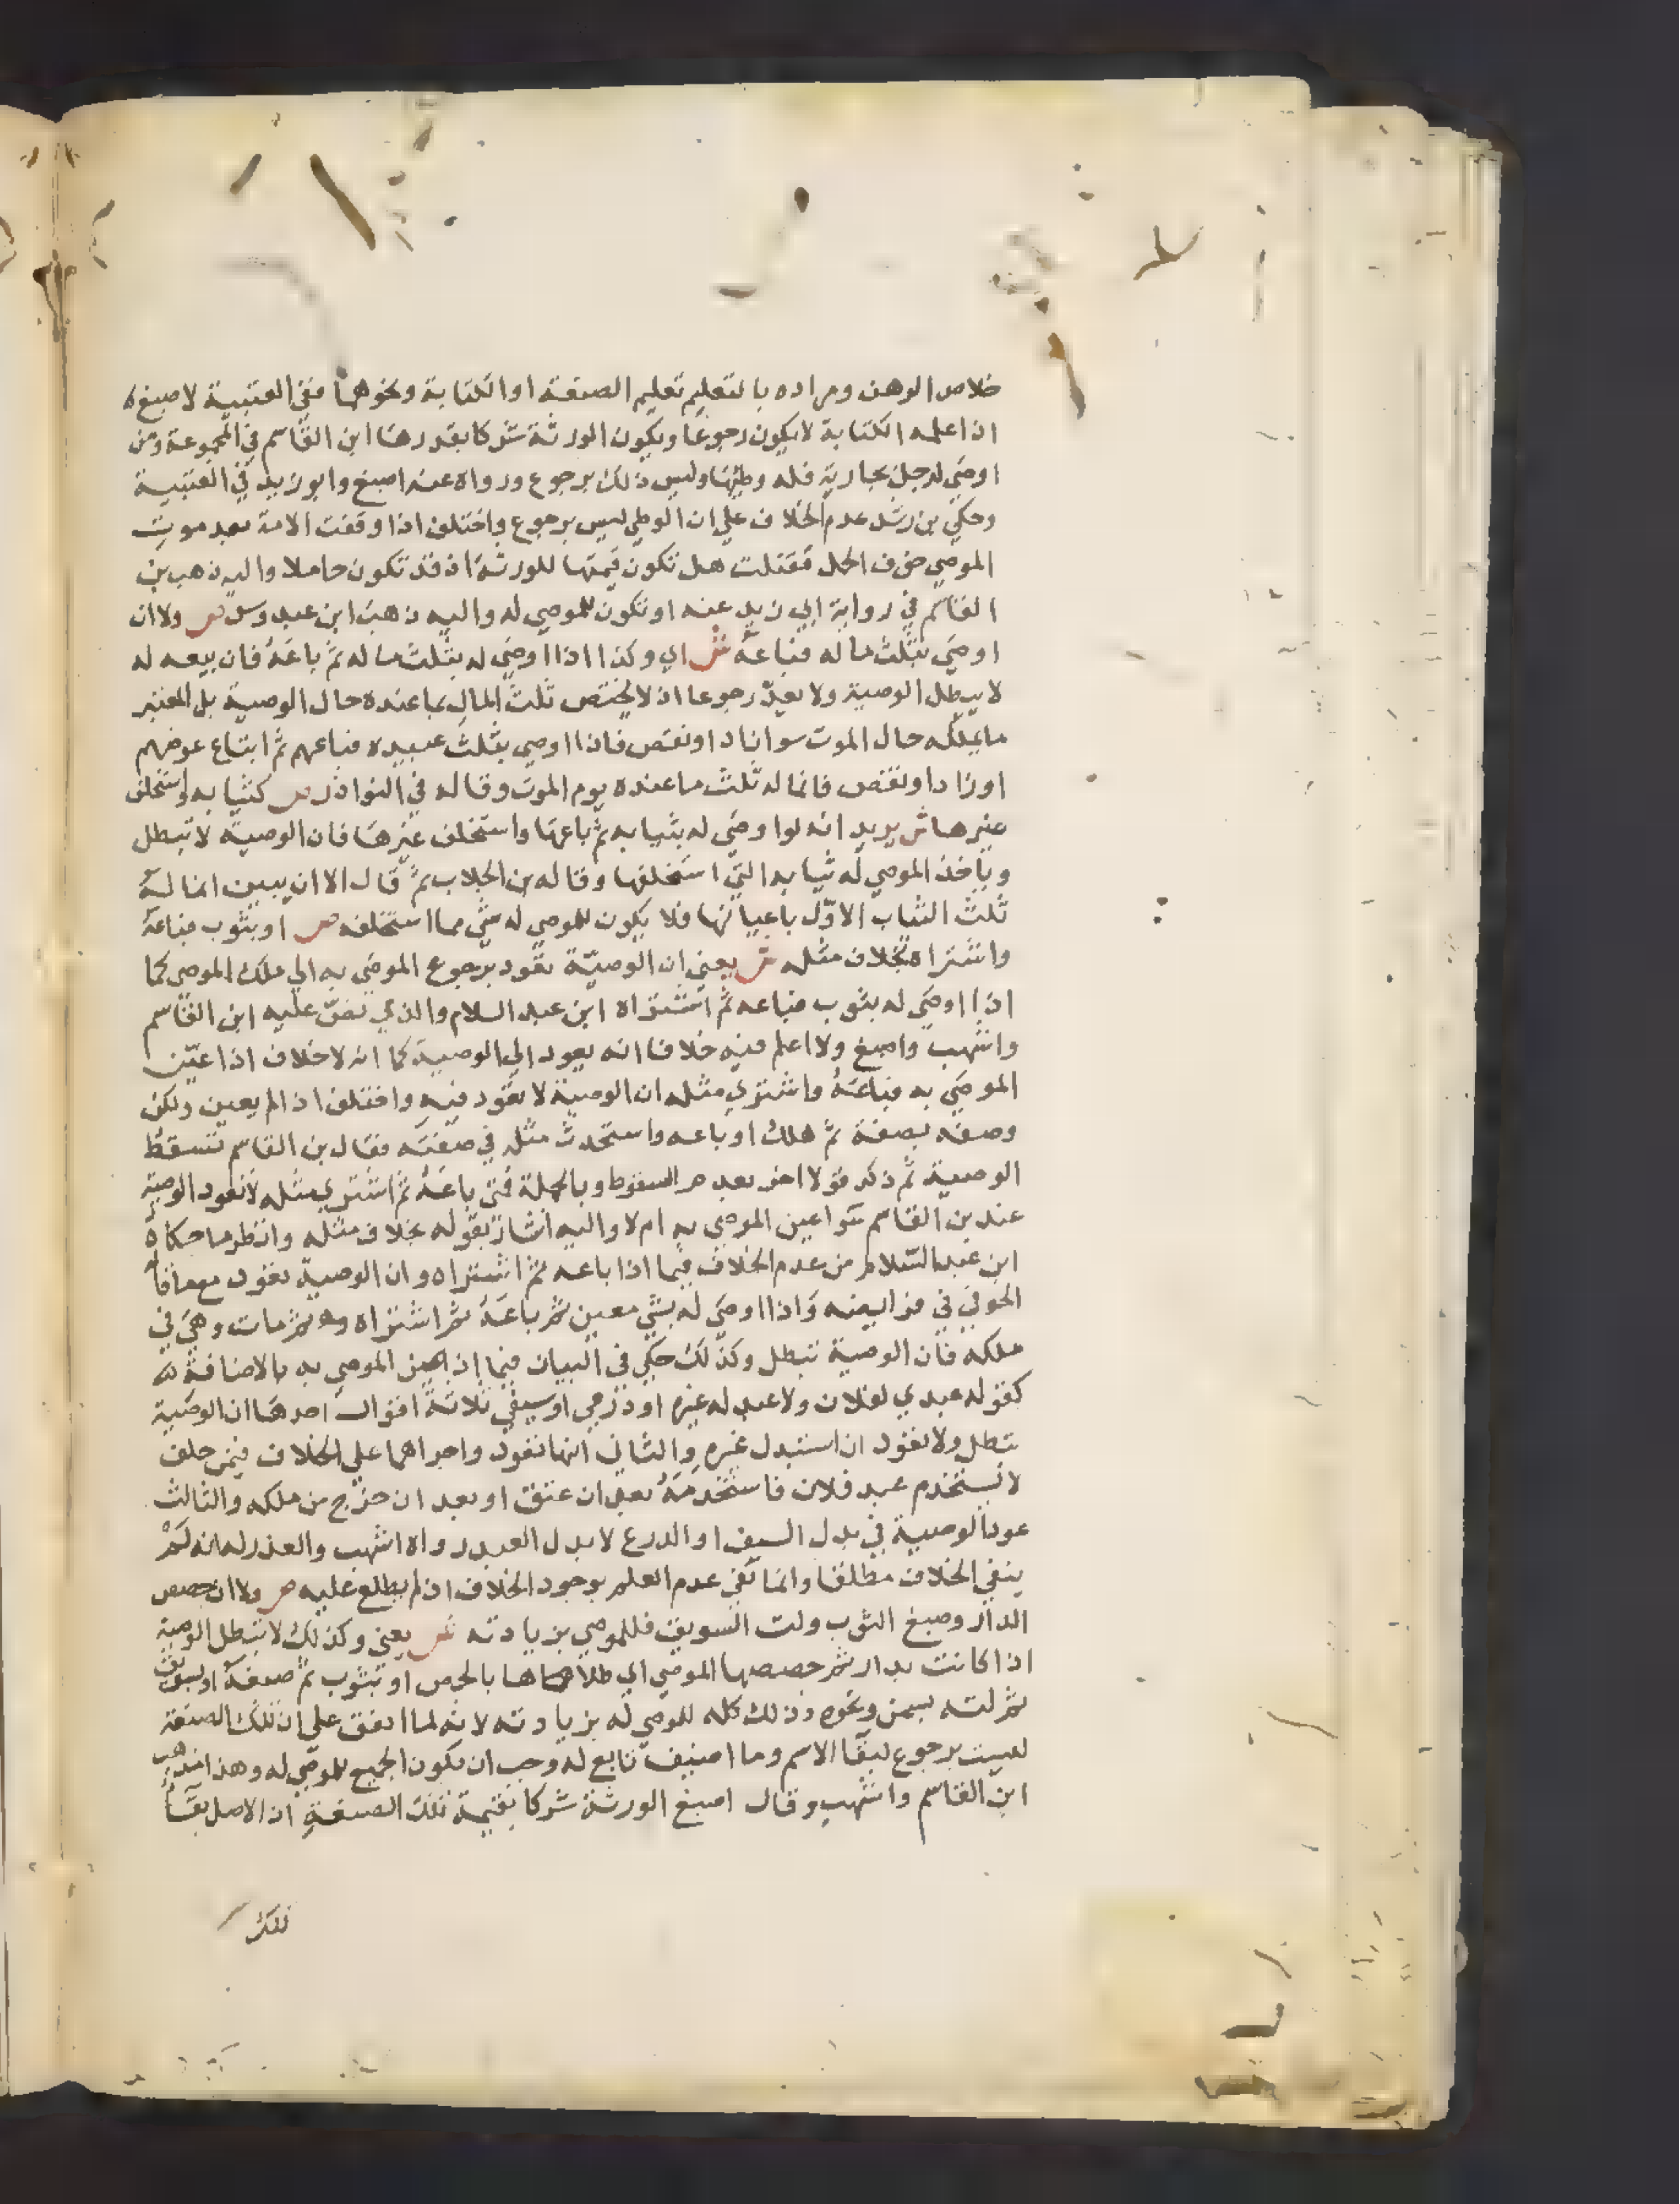 خلاص الوهن ومراده بالتعليم تعليم الصنعة او الكتابة ونحوهما ففي العتبية لاصبغ
اذا علمه الكتابة لا يكون رجوعا ويكون الورثة شركا بقدرها ابن القاسم في المجموعة ومن
اوصى لرجل بجارية فله وطئها وليس ذلك برجوع ورواه عنه اصبغ وابو زيد في العتبية
وحكى بن رشد عدم الخلاف على ان الوطي ليس برجوع واختلف اذا وقفت الامة بعد موت
الموصي خوف الحمل فقتلت هل تكون قيمتها للورثة اذ قد تكون حاملا واليه ذهب بن
القاسم في رواية ابي زيد عنه او تكون للموصى له واليه ذهب ابن عبدوس ص ولا ان
اوصى بثلث ماله فباعه ش اي وكذا اذا اوصى له بثلث ماله ثم باعه فان بيعه له
لا يبطل الوصية ولا يعد رجوعا اذ لا يختص ثلث المال بما عنده حال الوصية بل المعتبر
ما يملكه حال الموت سوا زاد او نقص فاذا اوصى بثلث عبيده فباعهم ثم ابتاع عوضهم
او زاد او نقص فانما له ثلث ما عنده يوم الموت وقاله في النوادر ص كثيابه واستخلف
غيرها ش يريد انه لو اوصى له بثيابه ثم باعها واستخلف غيرها فان الوصية لا تبطل
وياخذ الموصى له ثيابه التي استخلفها وقاله بن الجلاب ثم قال الا ان يبين انما له
ثلث الثياب الاول باعيانها فلا يكون للموصى له شي مما استخلفه ص او بثوب فباعه
واشتراه بخلاف مثله ش يعني ان الوصية تعود برجوع الموصى به الي ملك الموصي كما
اذا اوصى له بثوب فباعه ثم اشتراه ابن عبد السلام والذي نص عليه ابن القاسم
واشهب واصبغ ولا اعلم فيه خلافا انه يعود الي الوصية كما انه لا خلاف اذا عين
الموصى به فباعه واشترى مثله ان الوصية لا تعود فيه واختلف اذا لم يعين ولكن
وصفه بصفة ثم هلك او باعه واستحدث مثله في صفته فقال بن القاسم تسقط
الوصية ثم ذكر قولا اخر بعدم السقوط وبالجملة فمتى باعه ثم اشترى مثله لا تعود الوصية
عند بن القاسم سوا عين الموصى به ام لا واليه اشار بقوله بخلاف مثله وانظر ما حكاه
ابن عبد السلام من عدم الخلاف فيما اذا باعه ثم اشتراه وان الوصية تعود مع ما قاله
الحوفي في فرايضه واذا اوصى له بشي معين ثم باعه ثم اشتراه ثم مات وهي في
ملكه فان الوصية تبطل وكذلك حكى في البيان فيما اذا عين الموصى به بالاضافة
كقوله عبدي لفلان ولا عبد له غيره او درعي او سيفي ثلاثة اقوال احدها ان الوصية
تبطل ولا تعود ان استبدل غيره والثاني انها تعود واجراهما على الخلاف فيمن حلف
لا يستخدم عبد فلان فاستخدمه بعد ان عتق او بعد ان خرج من ملكه والثالث
عود الوصية في بدل السيف او الدرع لا بدل العبد رواه اشهب والعذر له انه لم
ينفي الخلاف مطلقا وانما نفى عدم العلم بوجود الخلاف اذ لم يطلع عليه ص ولا ان جصص
الدار وصبغ الثوب ولت السويق فللموصى بزيادته ش يعني وكذلك لا تبطل الوصية
اذا كانت بدار ثم جصصها الموصي اي طلاها بالجص او بثوب ثم صبغه او بسويق
ثم لته بسمن ونحوه وذلك كله للموصى له بزيادته لانه لما اتفق على ان تلك الصنعة
ليست برجوع لبقا الاسم وما اضيف تابع له وجب ان تكون الجميع للموصى له وهذا مذهب
ابن القاسم واشهب وقال اصبغ الورثة شركا بقيمة تلك الصنعة اذ الاصل بقا
تلك